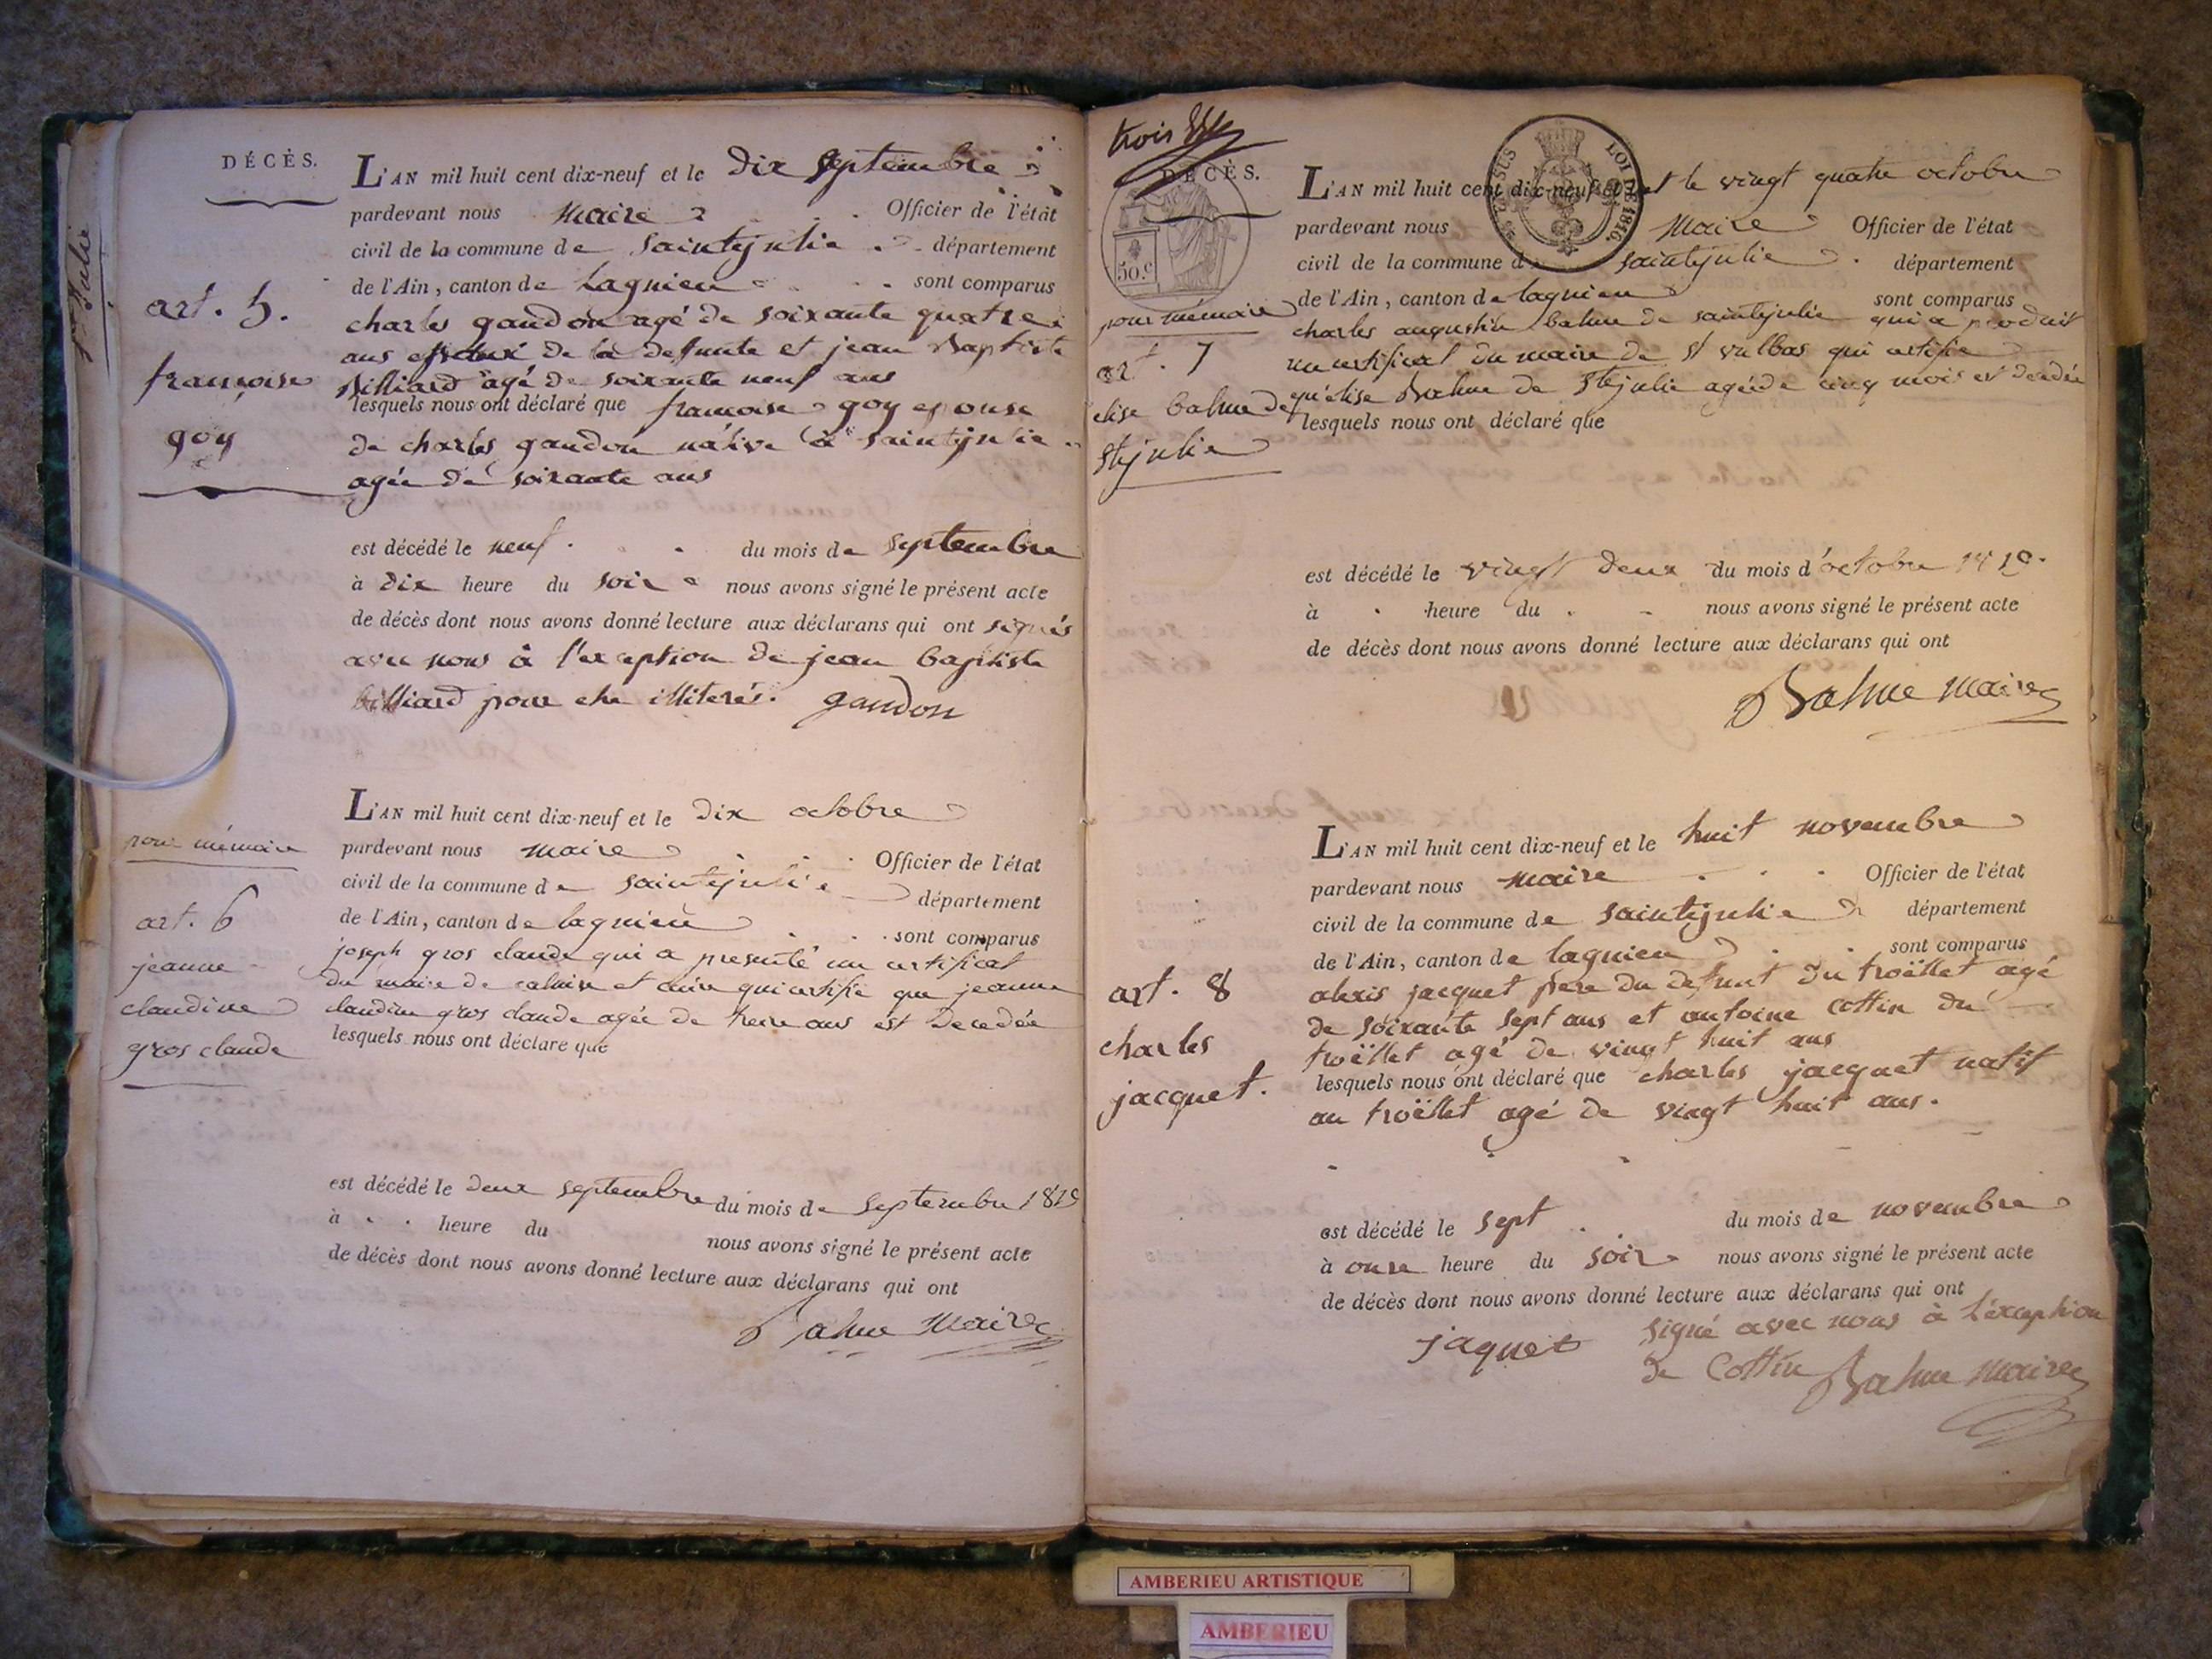 Ste Julie
DÉCÈS.
art. 5.
françoise
goy
L'AN mil huit cent dix-neuf et le dix septembre
pardevant nous maire Officier de l'état
civil de la commune de saintejulie département
de l'Ain, canton de Lagnieu sont comparus
charles gaudon agé de soixante quatre
ans epoux de la defunte et jean Baptiste
Billiard agé de soixante neuf ans
lesquels nous ont déclaré que francoise goy epouse
de charles gaudon native à saintejulie
agée de soixante ans
est décédé le neuf du mois de septembre
à dix heure du soir nous avons signé le présent acte
de décès dont nous avons donné lecture aux déclarans qui ont signés
avec nous à l'exception de jean baptiste
billiard pour etre illiterés. gaudon
pour mémoire
art. 6
jeanne
claudine
gros claude
L'AN mil huit cent dix-neuf et le dix octobre
pardevant nous maire Officier de l'état
civil de la commune de saintejulie département
de l'Ain, canton de lagnieu sont comparus
joseph gros claude qui a presenté un certificat
du maire de et cuire qui certifie que jeanne
claudine gros claude agée de ans est decedée
lesquels nous ont déclaré que
est décédé le deux septembre du mois de septembre 1819
à heure du nous avons signé le présent acte
de décès dont nous avons donné lecture aux déclarans qui ont
Bahue maire
trois
DÉCÈS.
50.c
pour mémoire
art. 7
elise bahue de
Stejulie
L'AN mil huit cent dix-neuf et le vingt quatre octobre
LOI DE 1816.
pardevant nous maire Officier de l'état
civil de la commune de saintejulie département
de l'Ain, canton de lagnieu sont comparus
charles augustin bahue de saintejulie qui a produit
un certificat du maire de st vulbas qui certifie
qu'élise Bahue de Stejulie agée de cinq mois est decedée
lesquels nous ont déclaré que
est décédé le vingt deux du mois d'octobre 1819.
à heure du nous avons signé le présent acte
de décès dont nous avons donné lecture aux déclarans qui ont
Bahue maire
art. 8
charles
jacquet.
L'AN mil huit cent dix-neuf et le huit novembre
pardevant nous maire Officier de l'état
civil de la commune de saintejulie département
de l'Ain, canton de lagnieu sont comparus
alexis jacquet pere du defunt du troëllet agé
de soixante sept ans et antoine cottin du
troëllet agé de vingt huit ans
lesquels nous ont déclaré que charles jacquet natif
au troëllet agé de vingt huit ans.
est décédé le sept du mois de novembre
à onze heure du soir nous avons signé le présent acte
de décès dont nous avons donné lecture aux déclarans qui ont
signé avec nous à l'exception
jaquet de Cottin Bahue maire
AMBERIEU ARTISTIQUE
AMBERIEU